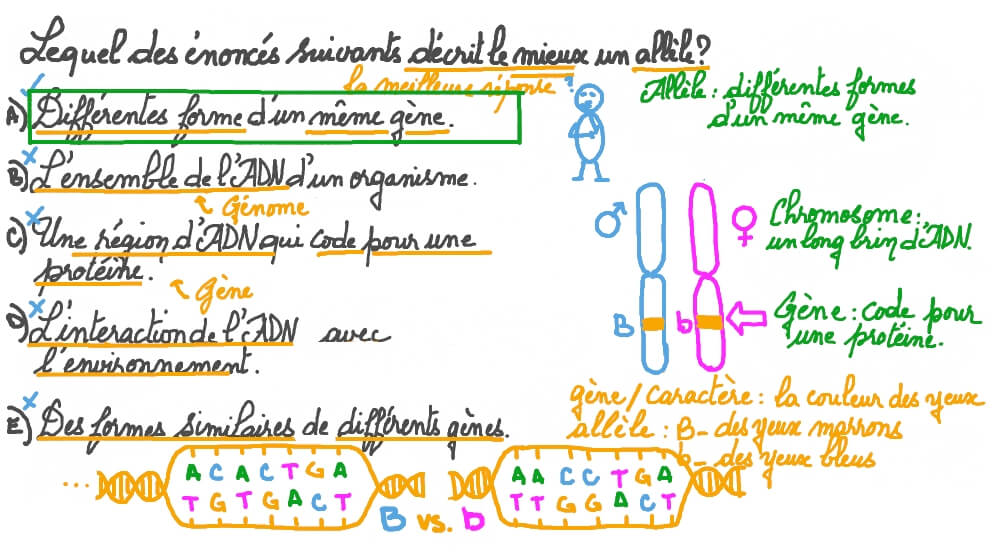 Lequel des énoncés suivants décrit le mieux un allèle?
la meilleure réponse
A) Différentes forme d'un même gène.
B) L'ensemble de l'ADN d'un organisme.
Génome
C) Une région d'ADN qui code pour une
protéine.
Gène
D) L'interaction de l'ADN avec
l'environnement.
E) Des formes similaires de différents gènes.
Allèle: différentes formes
d'un même gène.
♂
♀
Chromosome:
un long brin d'ADN.
B
b
Gène: code pour
une protéine.
gène/caractère: la couleur des yeux
allèle: B- des yeux marrons
b- des yeux bleus
...
A C A C T G A
T G T G A C T
B vs. b
A A C C T G A
T T G G A C T